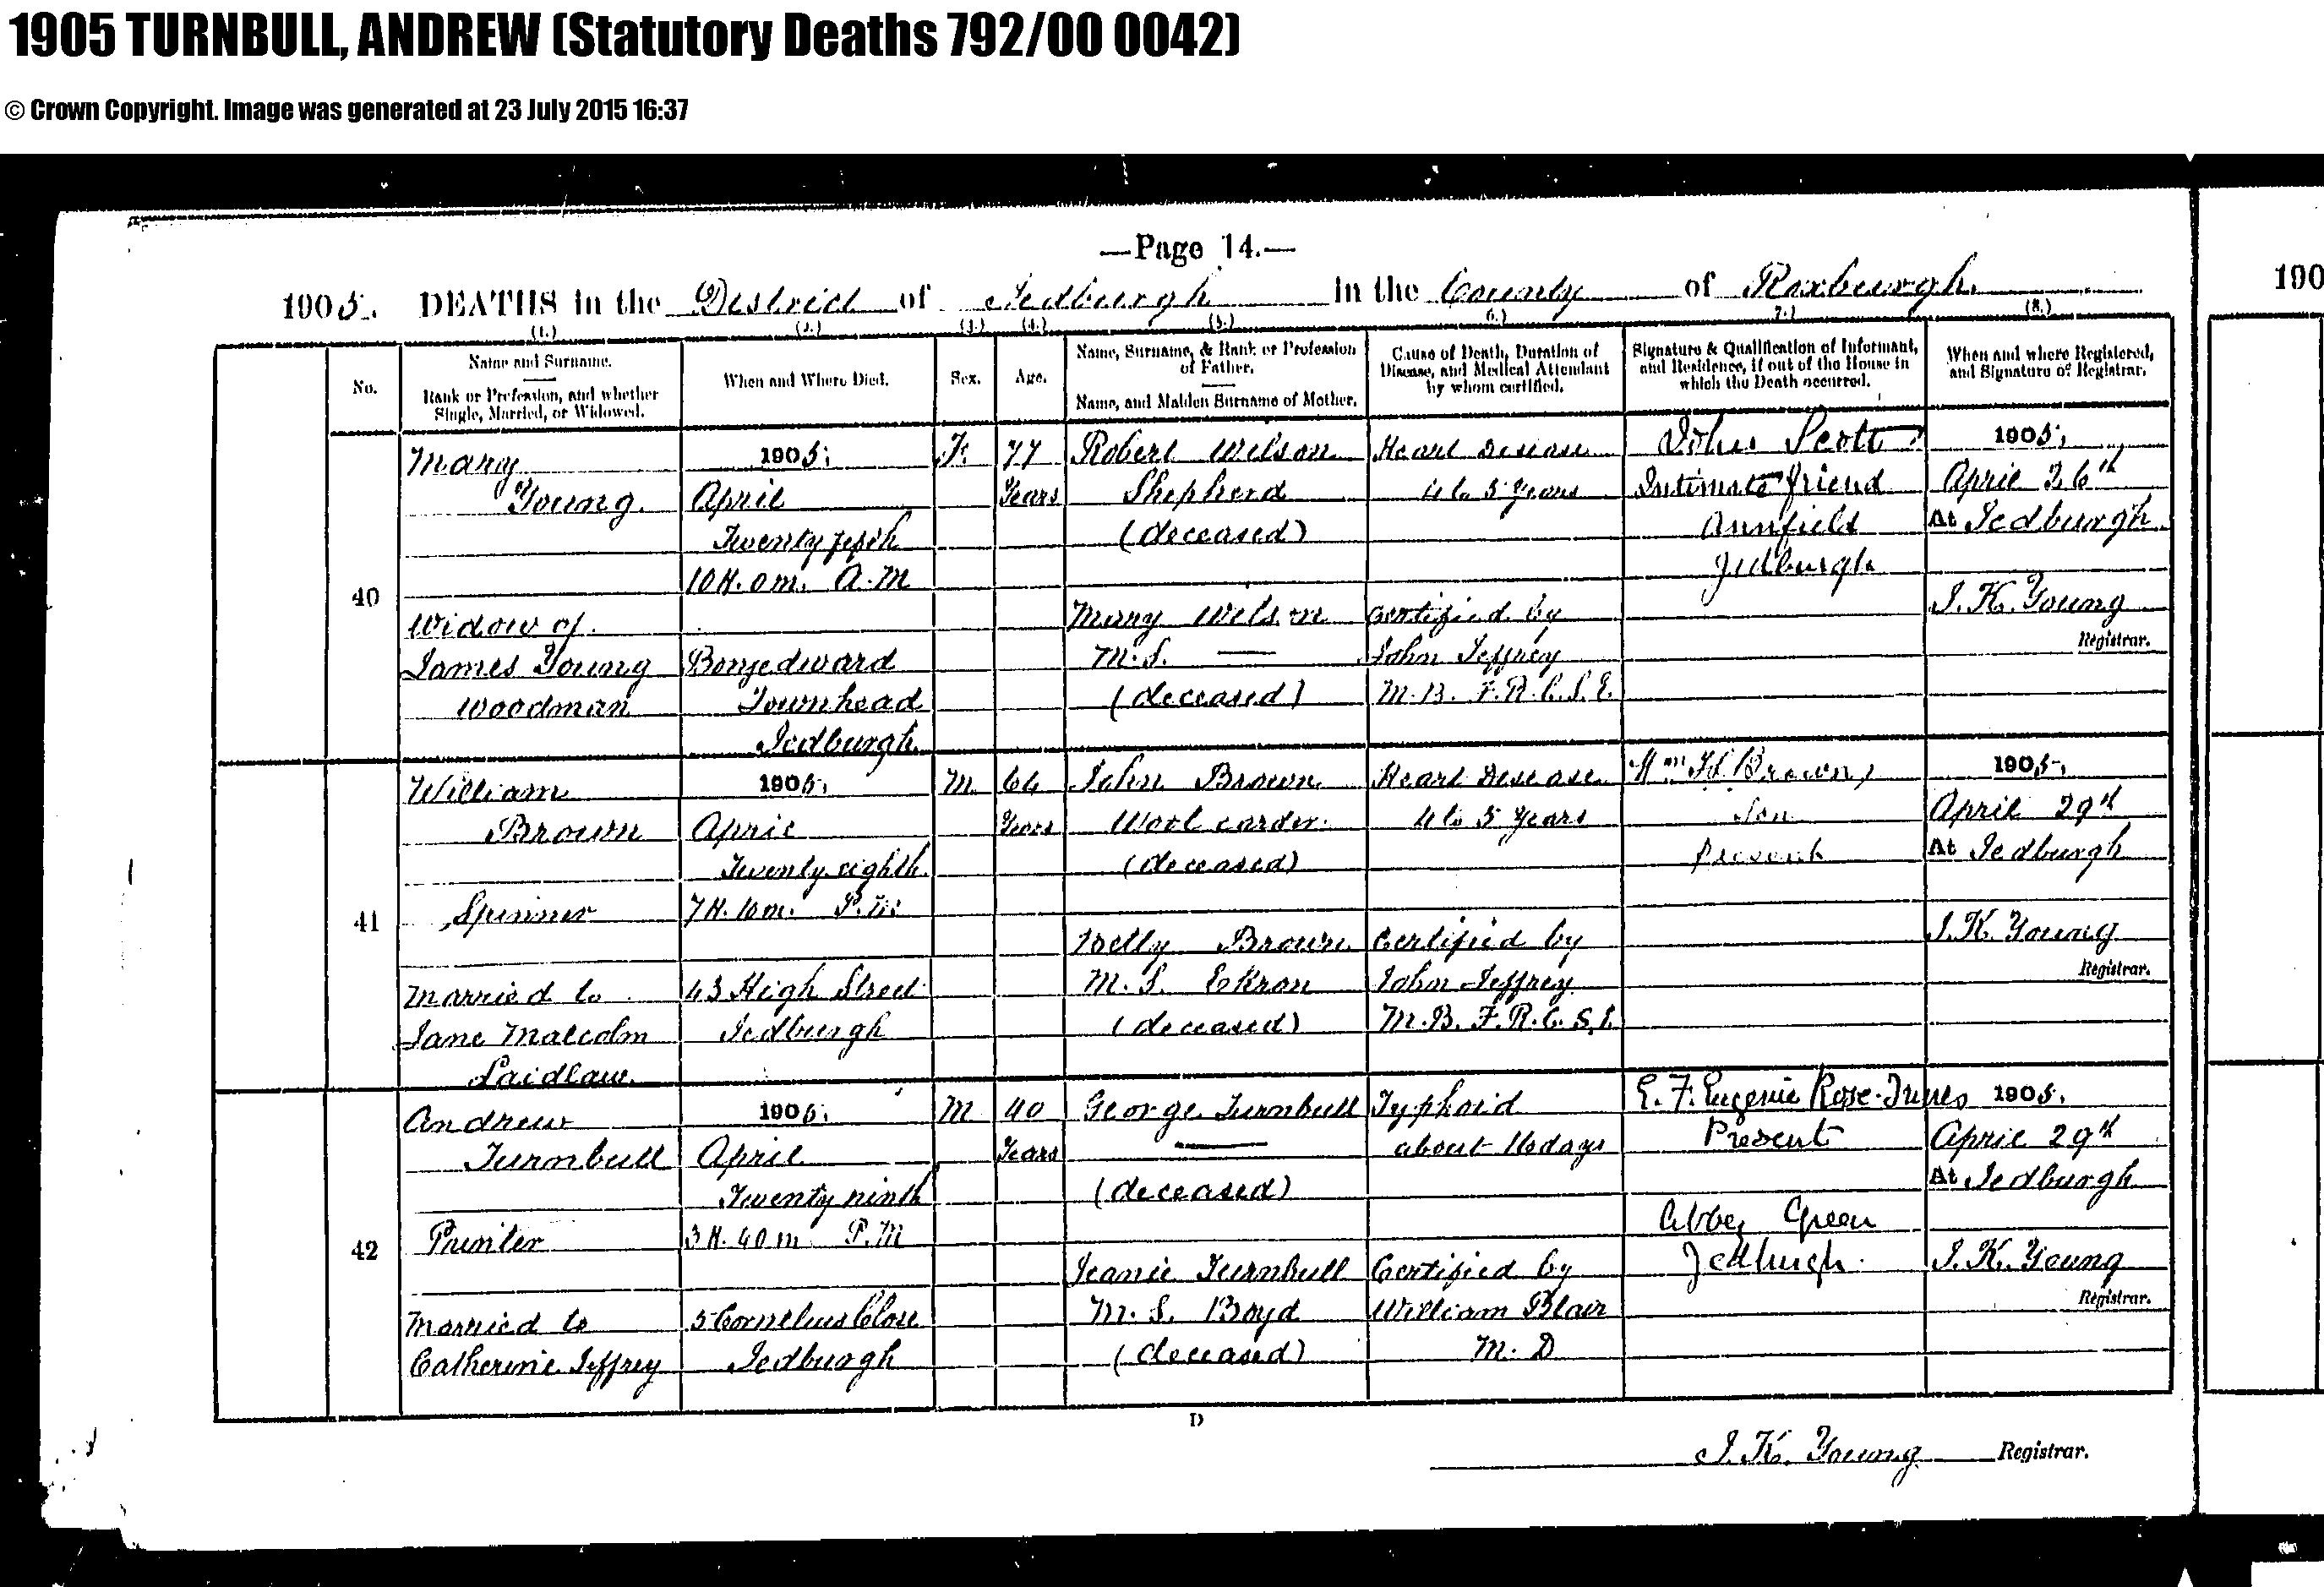 1905 TURNBULL, ANDREW (Statutory Deaths 792/00 0042)
© Crown Copyright. Image was generated at 23 July 2015 16:37
—Page 14.—
1905. DEATHS in the District of Jedburgh in the County of Roxburgh.
(1.) (2.) (3.) (4.) (5.) (6.) (7.) (8.)
No.
Name and Surname.
Rank or Profession, and whether
Single, Married, or Widowed.
When and Where Died.
Sex.
Age.
Name, Surname, & Rank or Profession
of Father.
Name, and Maiden Surname of Mother.
Cause of Death, Duration of
Disease, and Medical Attendant
by whom certified.
Signature & Qualification of Informant,
and Residence, if out of the House in
which the Death occurred.
When and where Registered,
and Signature of Registrar.
40
Mary
Young
Widow of
James Young
Woodman
1905.
April
Twenty fifth
10 H. 0 m. A.M
Bonjedward
Townhead
Jedburgh
F.
77
Years
Robert Wilson
Shepherd
(deceased)
Mary Wilson
M.S. —
(deceased)
Heart Disease
4 to 5 Years
Certified by
John Jeffrey
M.B. F.R.C.S.E.
John Scott
Intimate friend
Annfield
Jedburgh
1905.
April 26th
At Jedburgh
J. K. Young
Registrar.
41
William
Brown
Spinner
Married to
Jane Malcolm
Laidlaw
1905.
April
Twenty eighth
7 H. 10 m. P.M
43 High Street
Jedburgh
M
64
Years
John Brown
Wool carder
(deceased)
Brown
M.S. Ekron
(deceased)
Heart Disease
4 to 5 Years
Certified by
John Jeffrey
M.B. F.R.C.S.E.
Wm H Brown
Son
Present
1905.
April 29th
At Jedburgh
J. K. Young
Registrar.
42
Andrew
Turnbull
Printer
Married to
Catherine Jeffrey
1905.
April
Twenty ninth
3 H. 40 m P.M
5 Cornelius Close
Jedburgh
M
40
Years
George Turnbull
—
(deceased)
Jeanie Turnbull
M.S. Boyd
(deceased)
Typhoid
about 16 days
Certified by
William Blair
M.D
E. F. Eugenie Rose-Innes
Present
Abbey Green
Jedburgh.
1905.
April 29th
At Jedburgh
J. K. Young
Registrar.
D
J. K. Young Registrar.
190